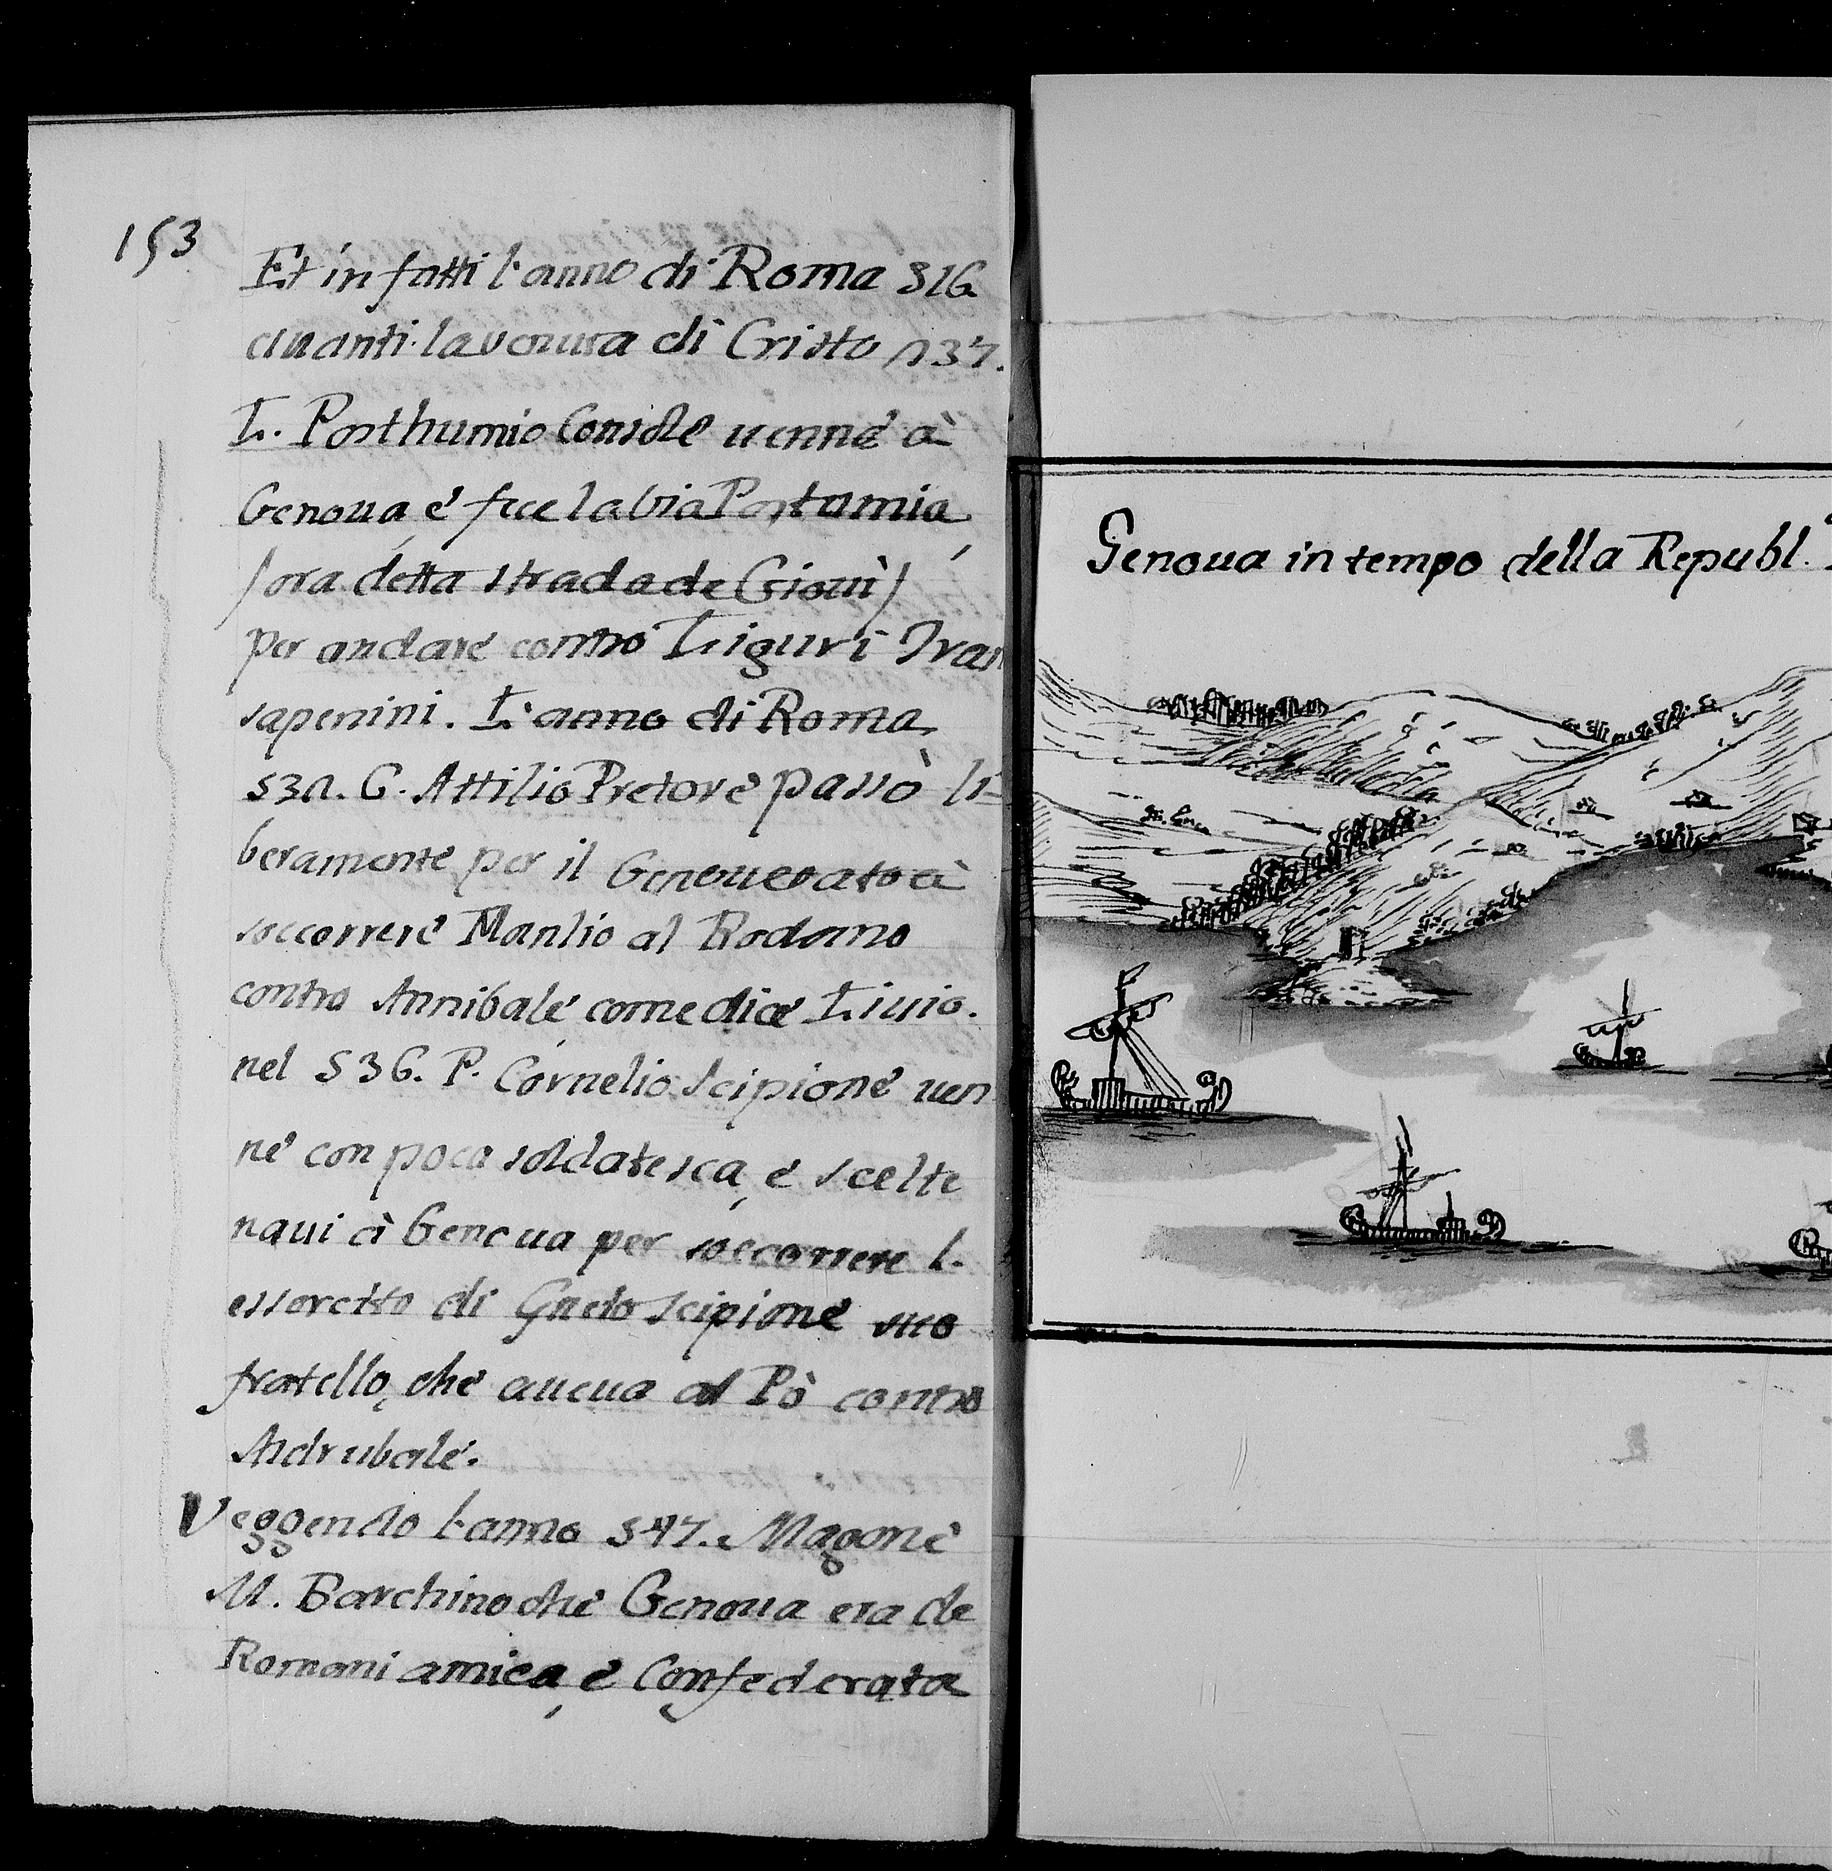 153
Et in fatti l'anno di Roma 516
auanti la venuta di Cristo 237.
L. Posthumio Console uenne à
Genoua, e fece la Via Postumia,
(ora detta strada de Gioui)
per andare contro Liguri Tran
sapenini. L'anno di Roma
532. C. Attilio Pretore passò li=
beramente per il Genouesato à
soccorrere Manlio al Rodano
contro Annibale, come dice Liuio.
nel 536. P. Cornelio Scipione uen
ne con poca soldatesca, e scelte
naui à Genoua per soccorrere l'
essercito di Gneio Scipione suo
fratello, che aueua al Pò contro
Asdrubale.
Veggendo l'anno 547. Magone
M. Barchino che Genoua era de
Romani amica, e Confederata
Genoua in tempo della Republ.